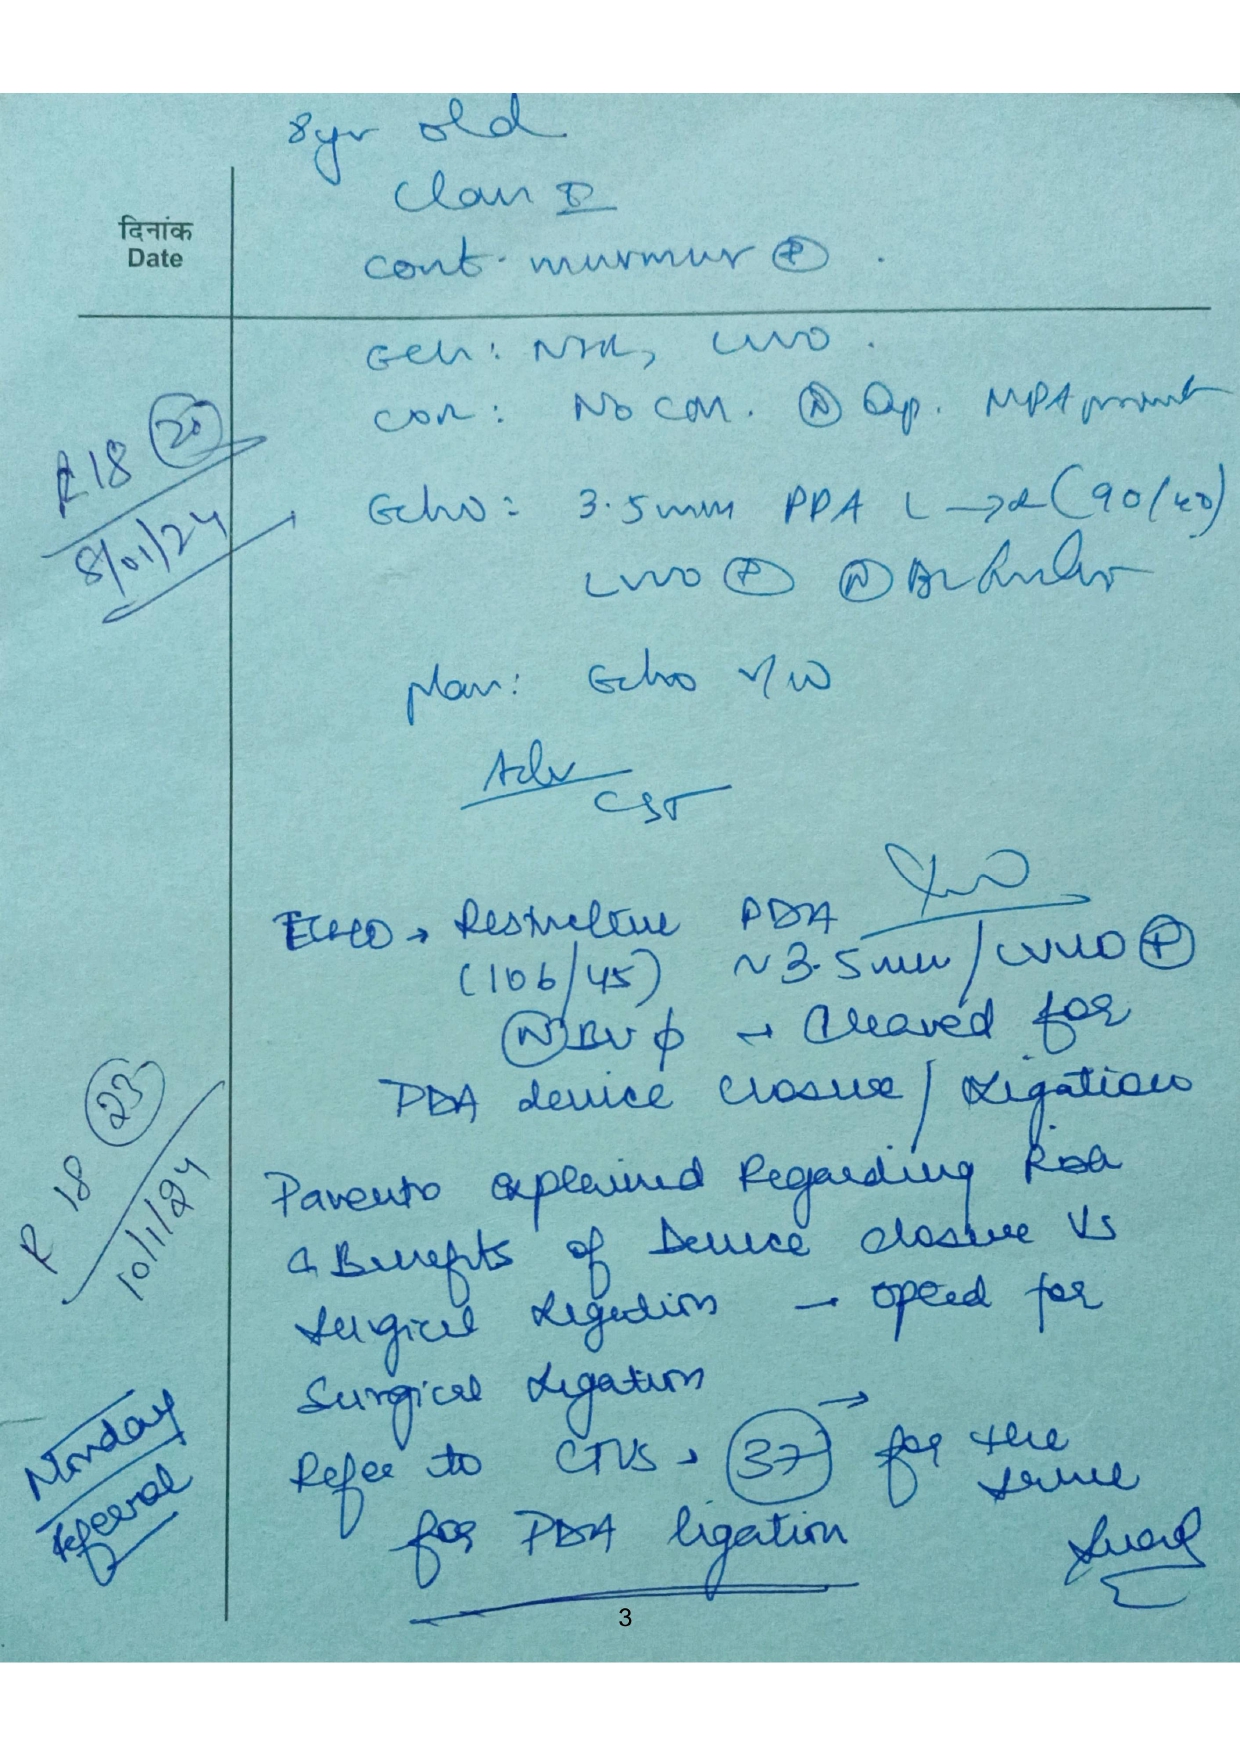 8yr old
Class II
cont. murmur (P) .
दिनांक
Date
ECG: NSR, LVVO .
CXR: No CM. (N) Qp. MPA prominent
R 18 (20)
8/01/24
Echo: 3.5mm PDA L → R (90/40)
LVVO (P) (N) BV function
plan: Echo r/w
Adv
CST
ECHO → Restrictive PDA
(106/45) ~3.5mm / LVVO (P)
(N) BV ϕ → Cleared for
PDA device closure / Ligation
R 18 (23)
10/1/24
Parents explained Regarding Risk
& Benefits of Device closure Vs
Surgical Ligation → opted for
Surgical Ligation
Monday
Referral
Refer to CTVS, (37) → for the
same
for PDA ligation
3